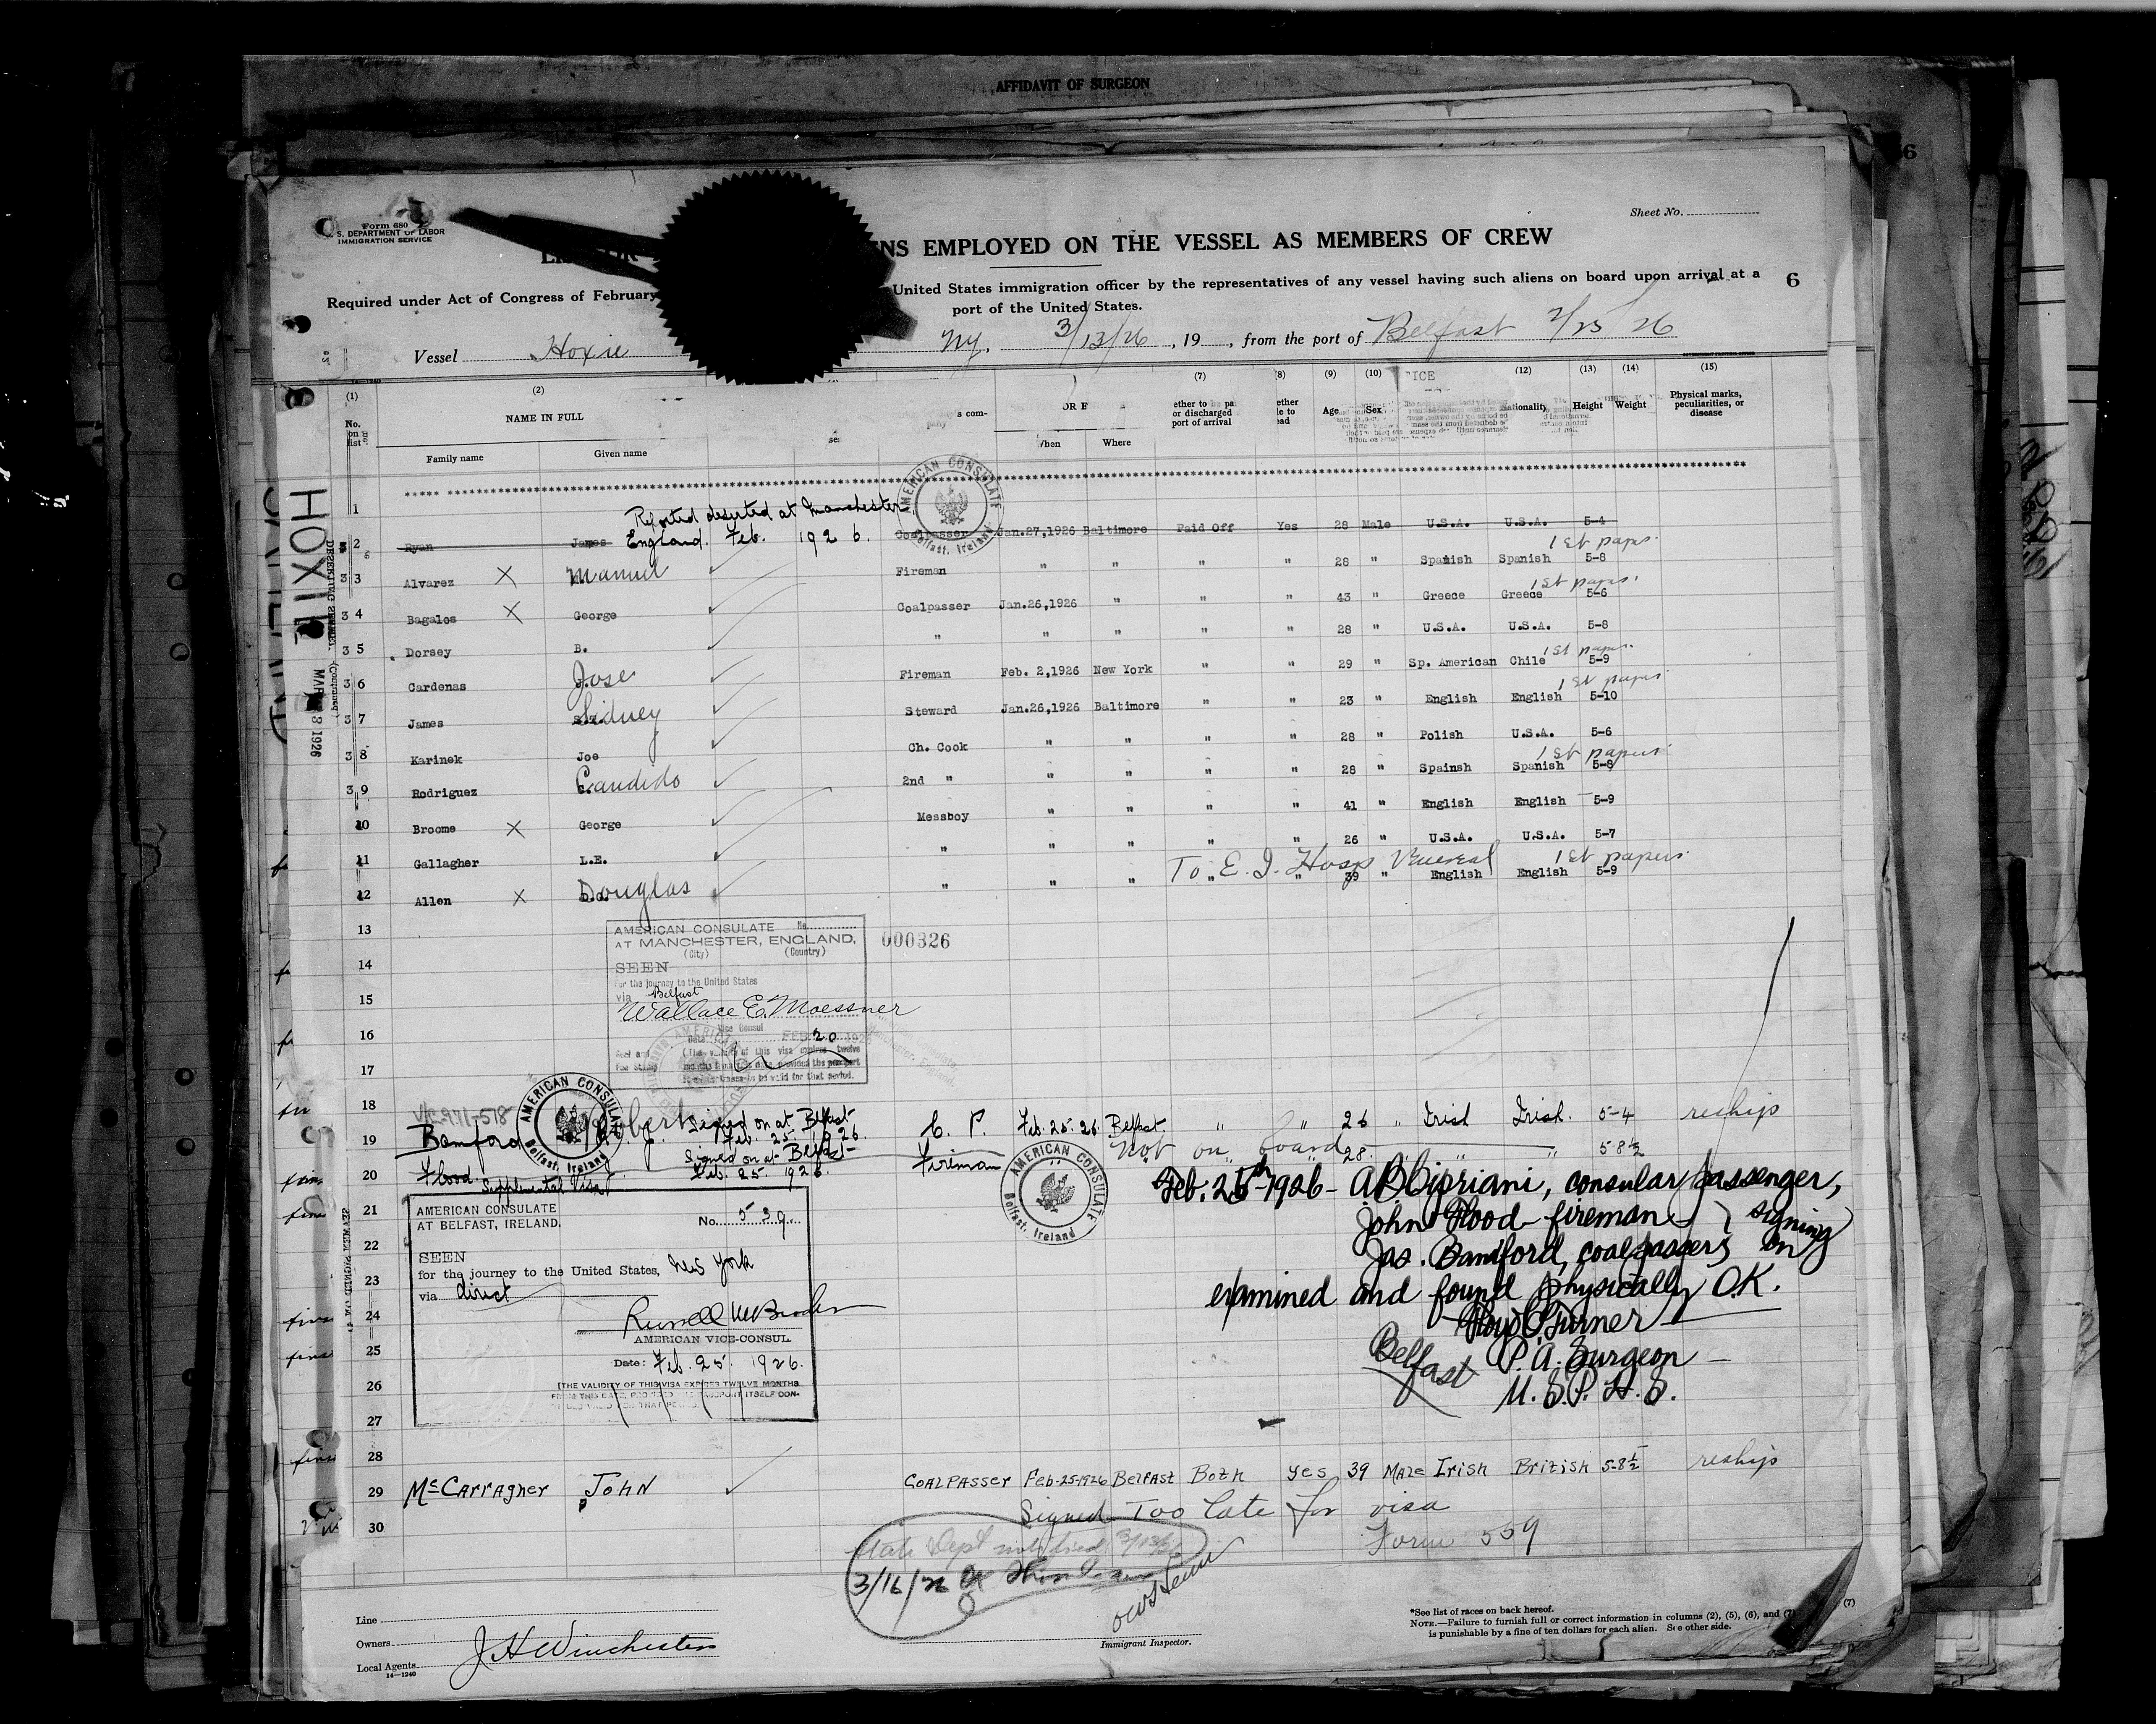 AFFIDAVIT OF SURGEON
Form 680
S. DEPARTMENT OF LABOR
IMMIGRATION SERVICE
Sheet No.
ENS EMPLOYED ON THE VESSEL AS MEMBERS OF CREW
Required under Act of Congress of February United States immigration officer by the representatives of any vessel having such aliens on board upon arrival at a
port of the United States.
6
Vessel Hoxie NY. 3/13/26, 19 , from the port of Belfast 2/25/26
(1) (2) (7) (8) (9) (10) (12) (13) (14) (15)
No. on list NAME IN FULL Age Sex Height Weight Physical marks, peculiarities, or disease
or discharged port of arrival
Family name Given name When Where
HOXIE
1
Reported deserted at Manchester
2 Ryan James England. Feb. 1926. Coalpasser Jan.27,1926 Baltimore Paid Off Yes 28 Male U.S.A. U.S.A. 5-4
1st paps.
3 3 Alvarez X Manuel Fireman " " " " 28 " Spanish Spanish 5-8
1st paps.
3 4 Bagalos X George Coalpasser Jan.26,1926 " " " 43 " Greece Greece 5-6
3 5 Dorsey B. " " " " " 28 " U.S.A. U.S.A. 5-8
1st paps.
3 6 Cardenas Jose Fireman Feb. 2,1926 New York " " 29 " Sp. American Chile 5-9
1st papers
3 7 James Sidney Steward Jan.26,1926 Baltimore " " 23 " English English 5-10
3 8 Karinek Joe Ch. Cook " " " " 28 " Polish U.S.A. 5-6
1st papers
3 9 Rodriguez Candido 2nd " " " " " 28 " Spainsh Spanish 5-8
10 Broome X George Messboy " " " " 41 " English English 5-9
11 Gallagher L.E. " " " " 26 " U.S.A. U.S.A. 5-7
To E. I. Hosp Venereal 1st papers
12 Allen X Douglas " " " " " 39 " English English 5-9
13
AMERICAN CONSULATE No.
AT MANCHESTER, ENGLAND, 000326
(City) (Country)
14
SEEN
for the journey to the United States
15
via Belfast
Wallace E. Moessner
16
Vice Consul
FEB 20 192
17
18
AMERICAN CONSULATE
Belfast, Ireland
19 Bamford Robert J. Signed on at Belfast Feb. 25. 1926. C. P. Feb. 25. 26. Belfast. " " 26 " Irish Irish. 5-4 reship
20 Flood J. Signed on at Belfast Feb. 25. 1926. Fireman Not on board 28. " " 5-8½
Supplemental Visa
AMERICAN CONSULATE
Belfast, Ireland
21
AMERICAN CONSULATE
AT BELFAST, IRELAND. No. 539.
22
SEEN
for the journey to the United States, New York
23
via direct
24
AMERICAN VICE-CONSUL
25
Date: Feb. 25. 1926.
26
[THE VALIDITY OF THIS VISA EXPIRES TWELVE MONTHS
27
Feb. 25th 1926 - A B Cipriani, consular passenger,
John Flood - fireman } signing
Jas. Bamford, coalpassers on
examined and found physically O.K.
Floyd C. Turner
Belfast P. A. Surgeon
U. S. P. H. S.
28
29 McCarragher John COALPASSER Feb-25-1926 Belfast Both yes 39 Male Irish British 5-8½ reship
Signed Too late for visa
30
Form 559
State Dept notified 3/13/26
3/16/26
Line
Owners
Local Agents J H Winchester
14—1240
Immigrant Inspector.
*See list of races on back hereof.
NOTE.—Failure to furnish full or correct information in columns (2), (5), (6), and (7)
is punishable by a fine of ten dollars for each alien. See other side.